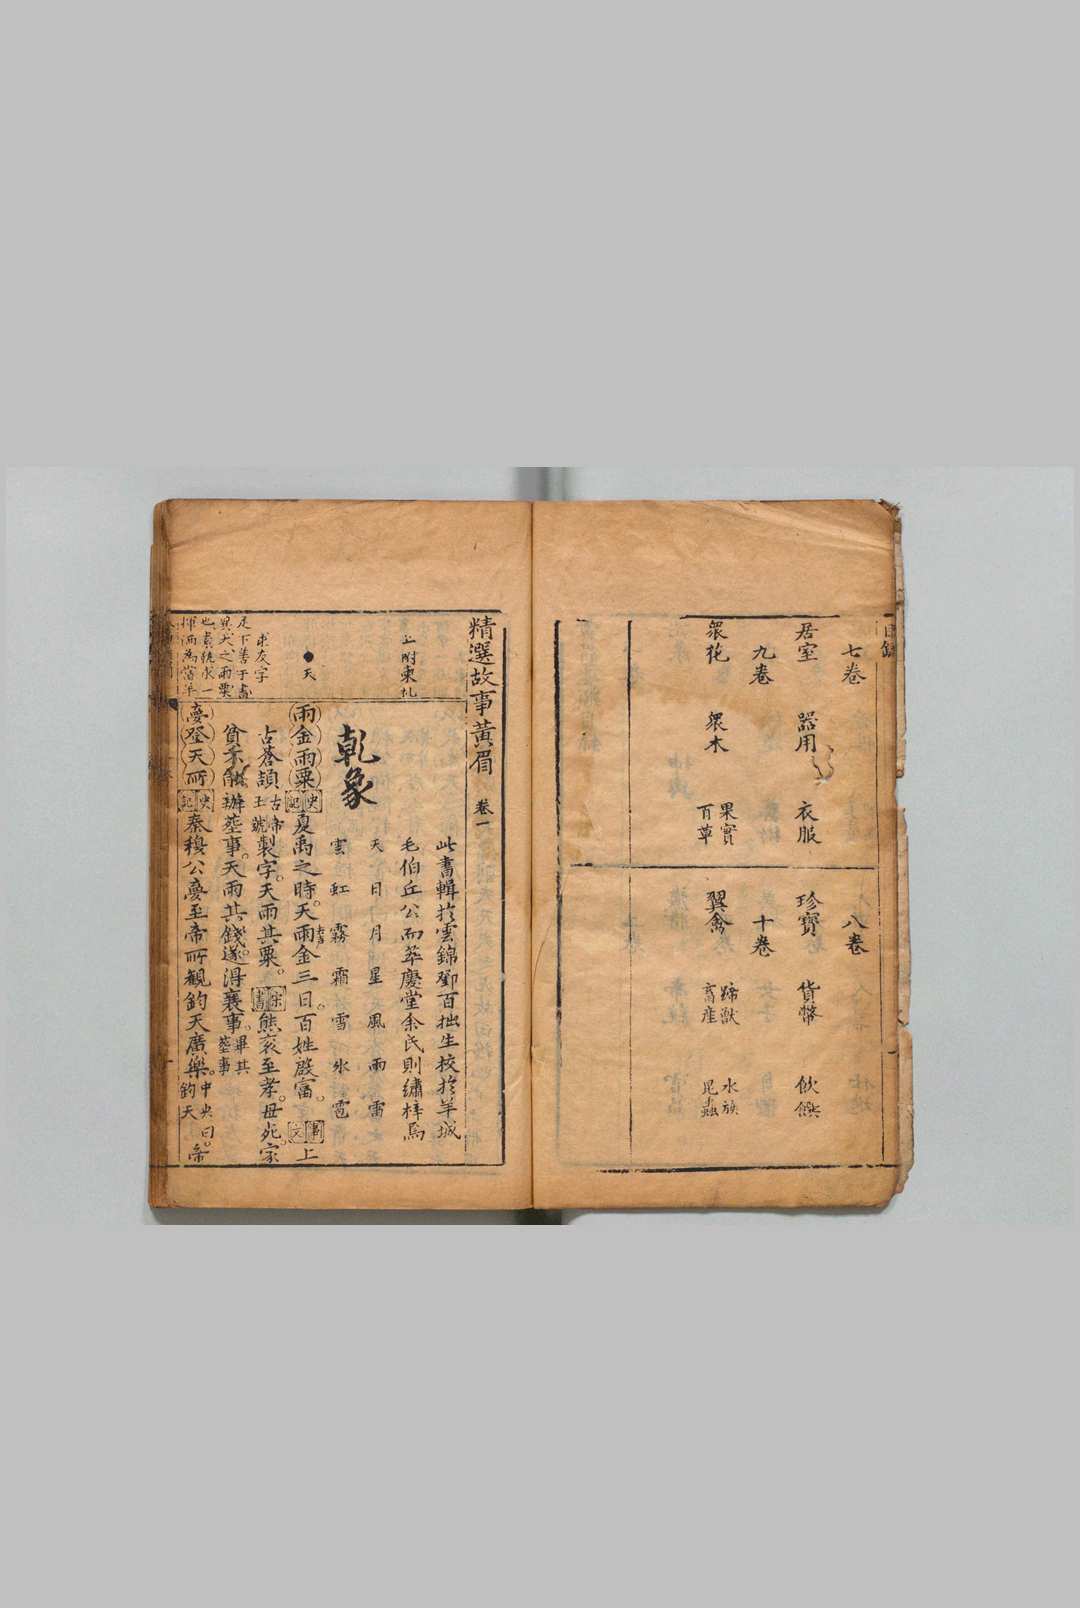 目錄
七卷
八卷
居室 器用 衣服 珍寶 貨幣 飲饌
九卷
十卷
衆花 衆木 果實 百草 翼禽 蹄獸 畜産 水族 昆蟲
精選故事黃眉 卷一
此書輯於雲錦鄧百拙生校於羊城
毛伯丘公而萃慶堂余氏則繡梓焉
上附柬札
天 日 月 星 風 雨 雷
雲 虹 霧 霜 雪 氷 雹
乾象
天
雨金雨粟 史記 夏禹之時天雨金三日百姓殷富 事文 上
古蒼頡 古帝王號 製字天雨其粟 宋書 熊袞至孝母死家
貧不能辦葬事天雨其錢遂得襄事 畢其葬事
夢登天所 史記 秦穆公夢至帝所觀鈞天廣樂 中央曰鈞天 帝
求友字
足下善于書
異犬之雨粟